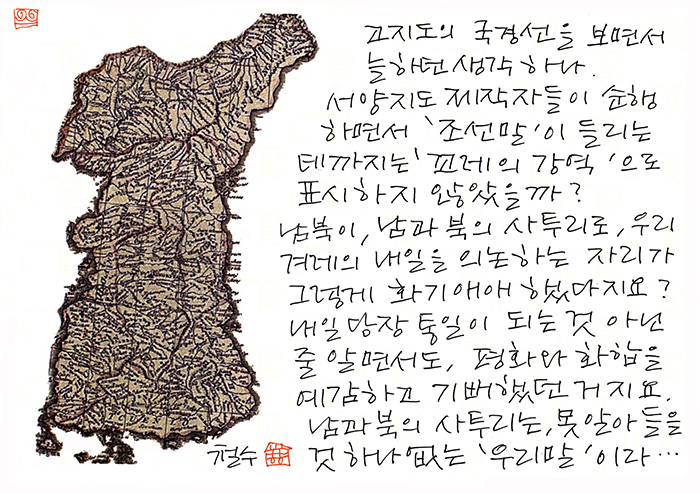 고지도의 국경선을 보면서
늘하던 생각 하나.
서양지도 제작자들이 순행
하면서 '조선말'이 들리는
데까지는 '꼬레의 강역'으로
표시하지 않았을까?
남북이, 남과 북의 사투리로, 우리
겨레의 내일을 의논하는 자리가
그렇게 화기애애 했다지요?
내일 당장 통일이 되는 것 아닌
줄 알면서도, 평화와 화합을
예감하고 기뻐했던 거지요.
남과 북의 사투리는, 못 알아 들을
것 하나 없는 '우리말'이라…
철수